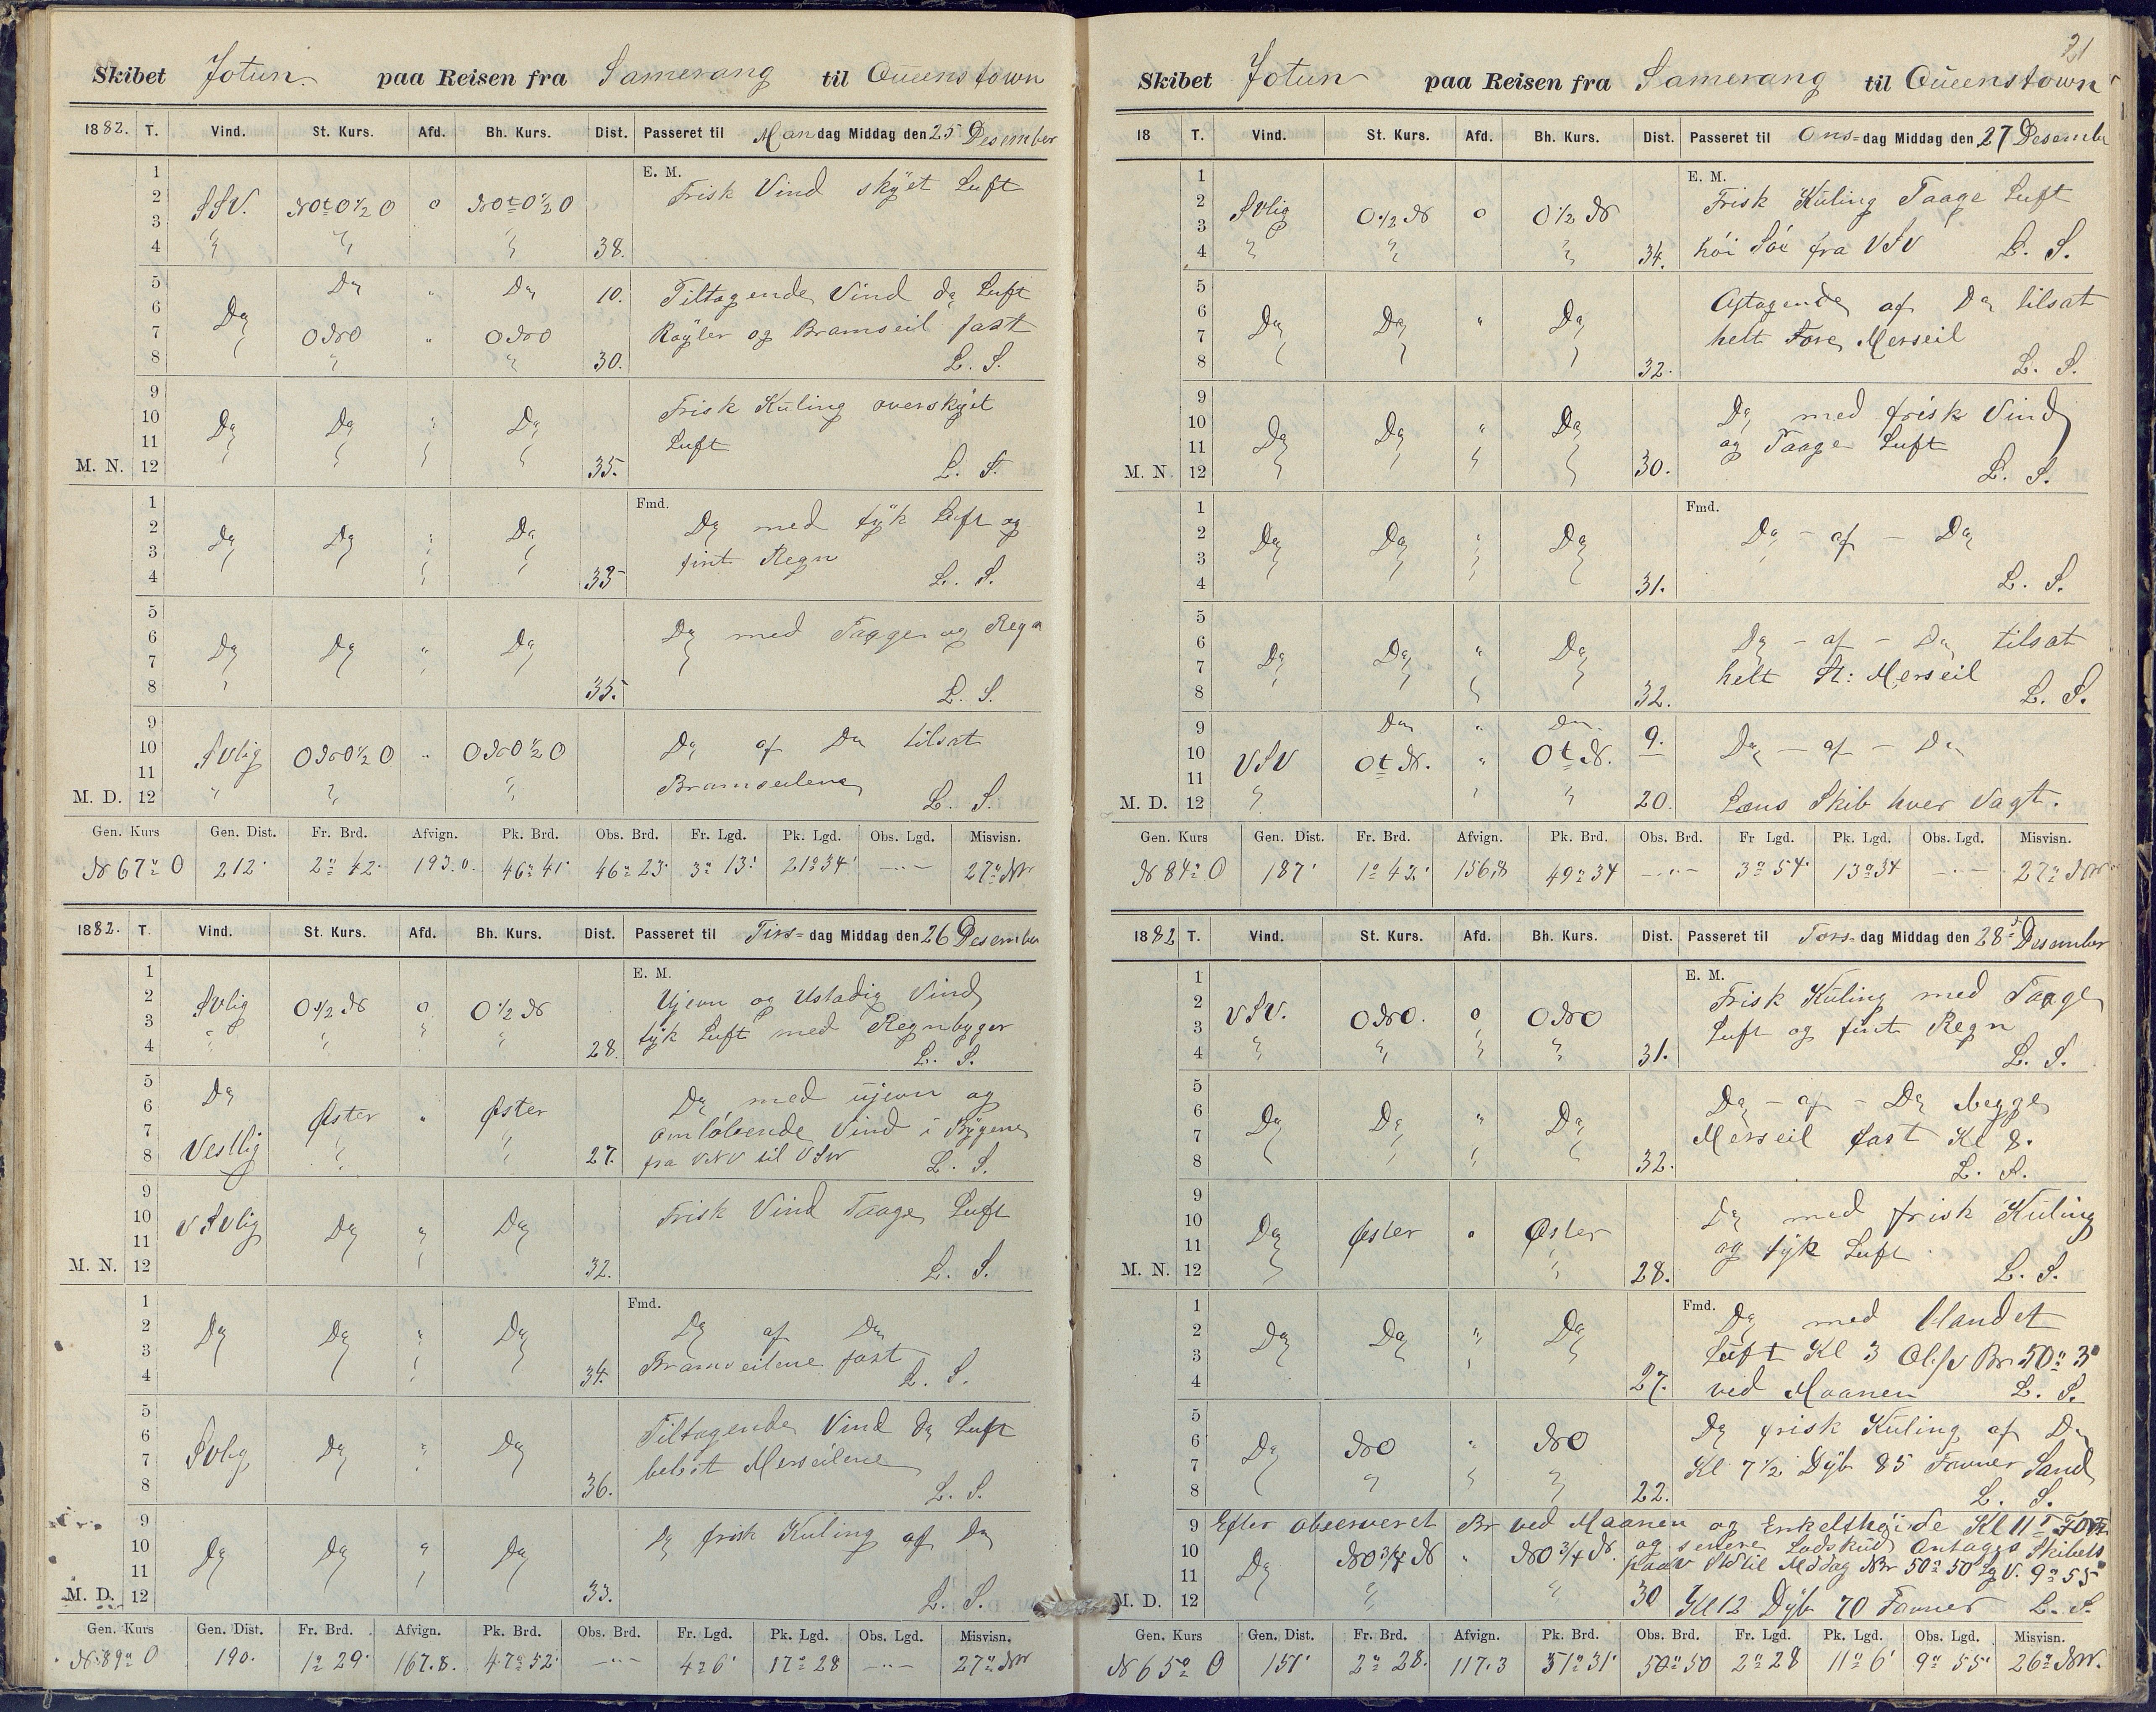 Skibet Jotun paa Reisen fra Samerang til Queenstown
1882. T. Vind. St. Kurs. Afd. Bh. Kurs. Dist. Passeret til Mandag Middag den 25 Desember
E. M.
1
2 SSV. NOtO½O o NOtO½O Frisk Vind skÿet Luft
3
4 38.
5 Do " Do 10. Tiltagende Vind do Luft
6 Do
7 ONO " ONO Røÿler og Bramseil fast
8 30. L. S.
9 Frisk Kŭling overskÿet
10 Do Do " Do
11 Luft
M. N. 12 35. L. S.
Fmd.
1 Do med tÿk Luft og
2 Do Do " Do
3 fint Regn
4 33 L. S.
5
6 Do Do " Do Do med Taage og Regn
7
8 35. L. S.
9
10 SVlig ONO½O " ONO½O Do af Do tilsat
11 Bramseilene
M. D. 12 L. S.
Gen. Kurs Gen. Dist. Fr. Brd. Afvign. Pk. Brd. Obs. Brd. Fr. Lgd. Pk. Lgd. Obs. Lgd. Misvisn.
N 67° O 212' 2° 42' 193.0. 46° 41' 46° 23' 3° 13' 21° 34' —"— 27° NW
1882. T. Vind. St. Kurs. Afd. Bh. Kurs. Dist. Passeret til Tirs= dag Middag den 26 Desember
E. M.
1 Ujevn og Ustadig Vind
2 SVlig O½N o O½N
3 tÿk Luft med Regnbyger
4 28. L. S.
5 Do
6 Øster " Øster Do med ŭjevn og
7 omløbende Vind i Bÿgene
8 Vestlig 27. fra VNV til VSW L. S.
9
10 VSVlig Do " Do Frisk Vind Taage Luft
11
M. N. 12 32. L. S.
Fmd.
1
2 Do Do " Do Do af Do
3 Bramseilene fast
4 34. L. S.
5
6 SVlig Do " Do Tiltagende Vind do Luft
7 Merseilene
8 36. L. S.
9
10 Do Do " Do Do frisk Kuling af Do
11
M. D. 12 33. L. S.
Gen. Kurs Gen. Dist. Fr. Brd. Afvign. Pk. Brd. Obs. Brd. Fr. Lgd. Pk. Lgd. Obs. Lgd. Misvisn.
N 89° O 190. 1° 29' 167.8. 47° 52' —"— 4° 6' 17° 28 —"— 27° NW
21
Skibet Jotun paa Reisen fra Samerang til Queenstown
18 T. Vind. St. Kurs. Afd. Bh. Kurs. Dist. Passeret til Ons= dag Middag den 27 Desember
E. M.
1
2 SVlig O½N o O½N Frisk Kŭling Taage Luft
3
4 34. høi Søe fra VSV L. S.
5
6 Do Do " Do Aftagende af Do tilsat
7 helt Fore Merseil
8 32. L. S.
9
10 Do Do " Do Do med frisk Vind
11 og Taage Luft
M. N. 12 30. L. S.
Fmd.
1
2 Do Do " Do Do - af - Do
3
4 31. L. S.
5
6 Do Do " Do Do - af - Do tilsat
7 helt St: Merseil
8 32. L. S.
9 Do " Do 9.
10 VSV OtN. " OtN. Do - af - Do
11
M. D. 12 20. Læns Skib hver Vagt.
Gen. Kurs Gen. Dist. Fr. Brd. Afvign. Pk. Brd. Obs. Brd. Fr Lgd. Pk. Lgd. Obs. Lgd. Misvisn.
N 84° O 187' 1° 42' 156.8 49° 34 —"— 3° 54' 13° 34 —"— 27° NW
1882 T. Vind. St. Kurs. Afd. Bh. Kurs. Dist. Passeret til Tors= dag Middag den 28 Desember
E. M.
1
2 VSV. ONO. o ONO Frisk Kŭling med Taage
3 Luft og fint Regn
4 31. L. S.
5
6 Do Do " Do Do - af - Do begge
7 Merseil fast Kl 8.
8 32. L. S.
9
10 Do Øster " Øster Do med frisk Kŭling
11 og tÿk Luft
M. N. 12 28. L. S.
Fmd.
1 Do med blandet
2 Do Do " Do
3 Luft Kl 3 Obs Br 50° 3'
4 27. ved Maanen L. S.
5 Do frisk Kŭling af Do
6 Do NO " NO
7 Kl 7½ Dÿb 85 Favner Sand
8 22. L. S.
9 Efter observeret Br ved Maanen og Enkelthøide Kl 11
10 Do NO¾N " NO¾N. og senere Lodskŭd Antages Skibets
11 til Middag NBr 50° 50' Lg V. 9° 55'
M. D. 12 30 Kl 12 Dÿb 70 Favner L. S.
Gen. Kurs Gen. Dist. Fr. Brd. Afvign. Pk. Brd. Obs. Brd. Fr. Lgd. Pk. Lgd. Obs. Lgd. Misvisn.
N 65° O 151' 2° 28. 117.3 51° 31' 50° 50 2° 28 11° 6' 9° 55' 26° NW.